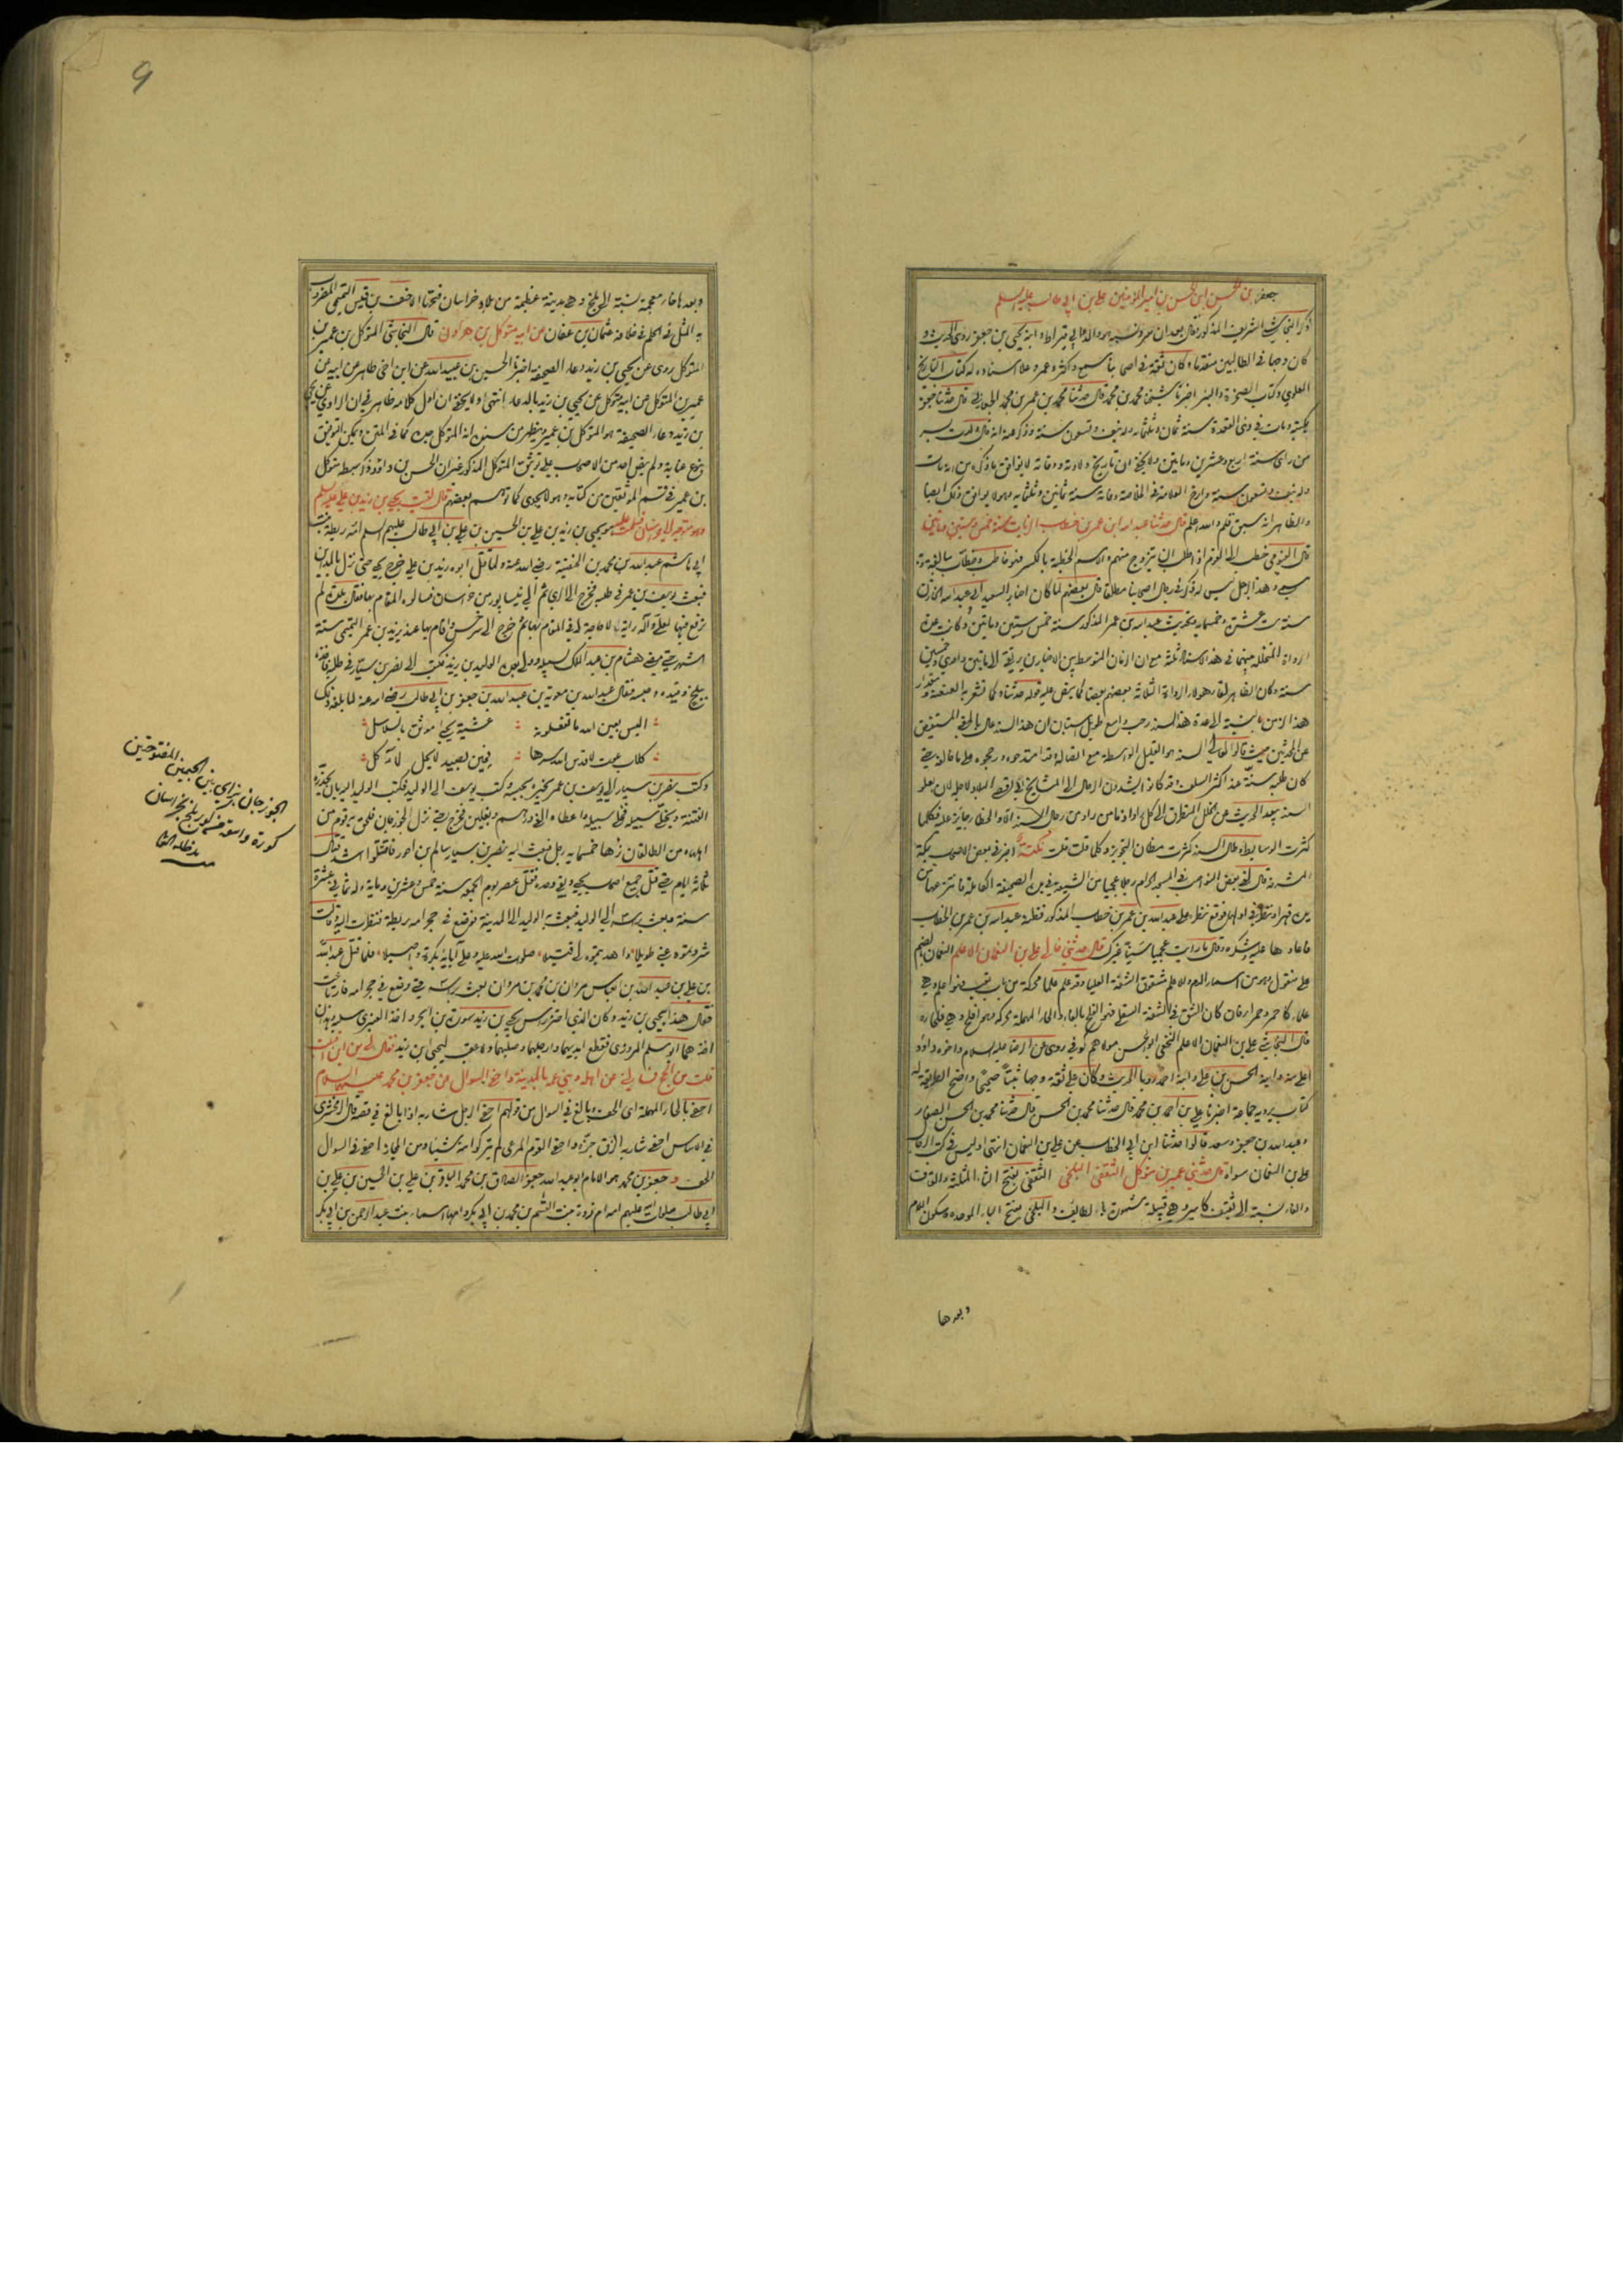 جعفر بن الحسن ابن الحسن بن امير المؤمنين علي بن ابي طالب عليه السلم
ذكر النجاشي الشريف المذكور فقال بعد ان سرد نسبه هو والد ابي قيراط وابنه يحيى بن جعفر روى الحديث و
كان وجها في الطالبيين متقدما وكان ثقة في اصحابنا سمع واكثر وعمر وعلا اسناده له كتاب التاريخ
العلوي وكتاب الصخرة والبئر اخبرنا شيخنا محمد بن محمد قال حدثنا محمد بن عمر بن محمد الجعابي قال حدثنا جعفر
بكتبه ومات في ذي القعدة سنة ثمان وثلثمائة وله نيف وتسعون سنة وذكر عنه انه قال ولدت بسر
من راى سنة اربع وعشرين ومايتين ولا يخفى ان تاريخ ولادته ووفاته لا يوافق ما ذكره من انه مات
وله نيف وتسعون سنة وارخ العلامة في الخلاصة وفاته سنة ثمانين وثلثمائة وهو لا يوافق ذلك ايضا
والظاهر انه سبق قلم والله اعلم قال حدثنا عبد الله ابن عمر بن خطاب الزيات سنة خمس وستين ومايتين
قال الفيومي خطب الى القوم اذا طلب ان يتزوج منهم والاسم الخطبة بالكسر فهو خاطب وخطاب مبالغة وبه
سمي وهذا الرجل ليس له ذكر في رجال اصحابنا مطلقا قال بعضهم لما كان اخبار السعيد ابي عبد الله الخازن
سنة ست عشرة وخمسمائة وتحديث عبد الله بن عمر المذكور سنة خمس وستين ومايتين وكانت عدة
الرواة المتخللة بينهما في هذا الاسناد ثلثة مع ان الزمان المتوسط بين الاخبارين يرتقي الى مايتين واحدى وخمسين
سنة وكان الظاهر لقاء هؤلاء الرواة الثلاثة بعضهم بعضا كما ينص عليه قوله حدثنا وكما تشعر به العنعنة ومقدار
هذا الزمن بالنسبة الى عدة هذا السند رحب واسع طويل استبان ان هذا السند عال بالمعنى المستفيض
عن المحدثين حيث قالوا العالي السند هو القليل الواسطة مع اتصاله وقد امتدحوه ورجحوه على ما خالفه حتى
كان طلبه سنة عند اكثر السلف وقد كانوا يشدون الرحال الى المشايخ في اقصى البلاد لاجله لان بعلو
السند يبعد الحديث عن الخلل المتطرق الى كل راو اذ ما من راو من رجال السند الا والخطاء جايز عليه فكلما
كثرت الوسايط وطال السند كثرت مظان التجويز وكلما قلت قلت نكتة اخبر في بعض الاصحاب بمكة
المشرفة قال لقي بعض النواصب في المسجد الحرام رجلا عجميا من الشيعة في يده الصحيفة الكاملة فانتزعها من
يده قهرا ونظر في اولها فوقع نظره على عبد الله بن عمر بن خطاب المذكور فظنه عبد الله بن عمر بن الخطاب
فاعادها عليه يشكره وقال ما رايت عجميا سنيا غيرك قال حدثني خالي علي بن النعمان الاعلم النعمان بضم
على منقول وهو من اسماء الدم والاعلم مشقوق الشفة العليا وقد علم علما محركة من باب تعب فهو اعلم وهي
علماء كاحمر وحمراء فان كان الشق في الشفة السفلى فهو افلح بالفاء والحاء المهملة محركة فهو افلح وهي فلحاء
قال النجاشي علي بن النعمان الاعلم النخعي ابو الحسن مولاهم كوفي روى عن الرضا عليه السلام واخوه داود
اعلى منه وابنه الحسن بن علي وابنه احمد رويا الحديث وكان علي ثقة وجها ثبتا صحيحا واضح الطريقة له
كتاب يرويه جماعة اخبرنا علي بن احمد بن محمد قال حدثنا محمد بن الحسن قال حدثنا محمد بن الحسن الصفار
وعبد الله بن جعفر وسعد قالوا حدثنا ابن ابي الخطاب عن علي بن النعمان انتهى وليس في كتب الرجال
علي بن النعمان سواه قال حدثني عمير بن متوكل الثقفي البلخي الثقفي بفتح الثاء المثلثة والقاف
والفاء نسبة الى ثقيف كامير وهي قبيلة مشهورة بالطائف والبلخي بفتح الباء الموحدة وسكون اللام
وبعدها
9
وبعدها خاء معجمة نسبة الى بلخ وهي مدينة عظيمة من بلاد خراسان فتحها الاحنف بن قيس التميمي المضروب
به المثل في الحلم في خلافة عثمان بن عفان عن ابيه متوكل بن هرون قال النجاشي المتوكل بن عمير بن
المتوكل روى عن يحيى بن زيد دعاء الصحيفة اخبرنا الحسين بن عبيد الله عن ابن اخي طاهر عن ابيه عن
عمير بن المتوكل عن ابيه متوكل عن يحيى بن زيد بالدعاء انتهى ولا يخفى ان اول كلامه ظاهر في ان الراوي عن يحيى
بن زيد دعاء الصحيفة هو المتوكل بن عمير ويظهر من سنده انه المتوكل جده كما في المتن ويمكن التوفيق
بنوع عناية ولم ينص احد من الاصحاب على توثيق المتوكل المذكور غير ان الحسن بن داود ذكر سبطه متوكل
بن عمير في قسم الموثقين من كتابه وهو لا يجدي كما توهم بعضهم قال لقيت يحيى بن زيد بن علي عليه السلم
وهو متوجه الى خراسان فسلمت عليه هو يحيى بن زيد بن علي بن الحسين بن علي بن ابي طالب عليهم السلم امه ريطة بنت
ابي هاشم عبد الله بن محمد بن الحنفية رضي الله عنه ولما قتل ابوه زيد بن علي خرج يحيى حتى نزل بالمداين
فبعث يوسف بن عمر في طلبه فخرج الى الري ثم الى نيسابور من خراسان فسالوه المقام بها فقال بلدة لم
ترفع فيها لعلي وآله راية لا حاجة لي في المقام بها ثم خرج الى سرخس واقام بها عند يزيد بن عمر التميمي ستة
اشهر حتى مضى هشام بن عبد الملك لسبيله وولي بعده الوليد بن يزيد فكتب الى نصر بن سيار في طلبه فاخذه
ببلخ وقيده وحبسه فقال عبد الله بن معوية بن عبد الله بن جعفر بن ابي طالب رضي الله عنه لما بلغه ذلك
اليس بعين الله ما تفعلونه عشية يحيى موثق بالسلاسل
كلاب عوت لا قدس الله سرها فجئن بصيد لا يحل لآكل
وكتب نصر بن سيار الى يوسف بن عمر يخبره بحبسه وكتب يوسف الى الوليد فكتب الوليد اليه بان يحذره
الفتنة ويخلي سبيله فخلى سبيله واعطاه الفي درهم وبغلين فخرج حتى نزل الجوزجان فلحق به قوم من
اهلها ومن الطالقان زهاء خمسمائة رجل فبعث اليه نصر بن سيار سالم بن احور فاقتتلوا اشد قتال
ثلاثة ايام حتى قتل جميع اصحاب يحيى وبقي وحده فقتل عصر يوم الجمعة سنة خمس وعشرين ومايه وله ثماني عشرة
سنة وبعث براسه الى الوليد فبعث به الوليد الى المدينة فوضع في حجر امه ريطة فنظرت اليه وقالت
شردتموه عني طويلا واهديتموه الي قتيلا صلوات الله عليه وعلى آبائه بكرة واصيلا فلما قتل عبد الله
بن علي بن عبد الله بن العباس مروان بن محمد بن مروان بعث براسه حتى وضع في حجر امه فارتاعت
فقال هذا بيحيى بن زيد وكان الذي احتز راس يحيى بن زيد سورة بن ابجر واخذ العنبري سلبه وهذان
اخذهما ابو مسلم المروزي فقطع ايديهما وارجلهما وصلبهما ولا عقب ليحيى ابن زيد فقال لي من اين اقبلت
قلت من الحج فسالني عن اهله وبني عمه بالمدينة واحفى السوال عن جعفر بن محمد عليهما السلام
احفى بالحاء المهملة اى الحف وبالغ في السوال من قولهم احفى الرجل شاربه اذا بالغ في قصه قال الزمخشري
في الاساس احفى شاربه الزق جزه واحفى القوم المرعى لم يتركوا منه شيئا ومن المجاز احفى في السوال
الحف وجعفر بن محمد هو الامام ابو عبد الله جعفر الصادق بن محمد الباقر بن علي بن الحسين بن علي بن
ابي طالب صلوات الله عليهم امه ام فروة بنت القسم بن محمد بن ابي بكر وامها اسماء بنت عبد الرحمن بن ابي بكر
الجوزجان بزاي بين الجيمين المفتوحتين
كورة واسعة من كور بلخ بخراسان
مد ظله العالي